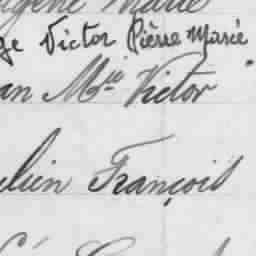 Marie
ge Victor Pierre Marie
an M.ie Victor
lien François